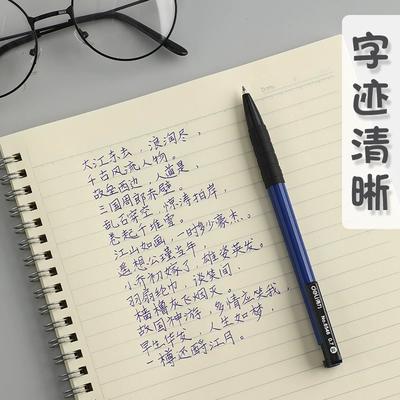 字迹清晰
大江东去，浪淘尽，
千古风流人物。
故垒西边，人道是，
三国周郎赤壁。
乱石穿空，惊涛拍岸，
卷起千堆雪。
江山如画，一时多少豪杰。
遥想公瑾当年，
小乔初嫁了，雄姿英发。
羽扇纶巾，谈笑间，
樯橹灰飞烟灭。
故国神游，多情应笑我，
早生华发，人生如梦，
一樽还酹江月。
deli得力
No.6546 0.7